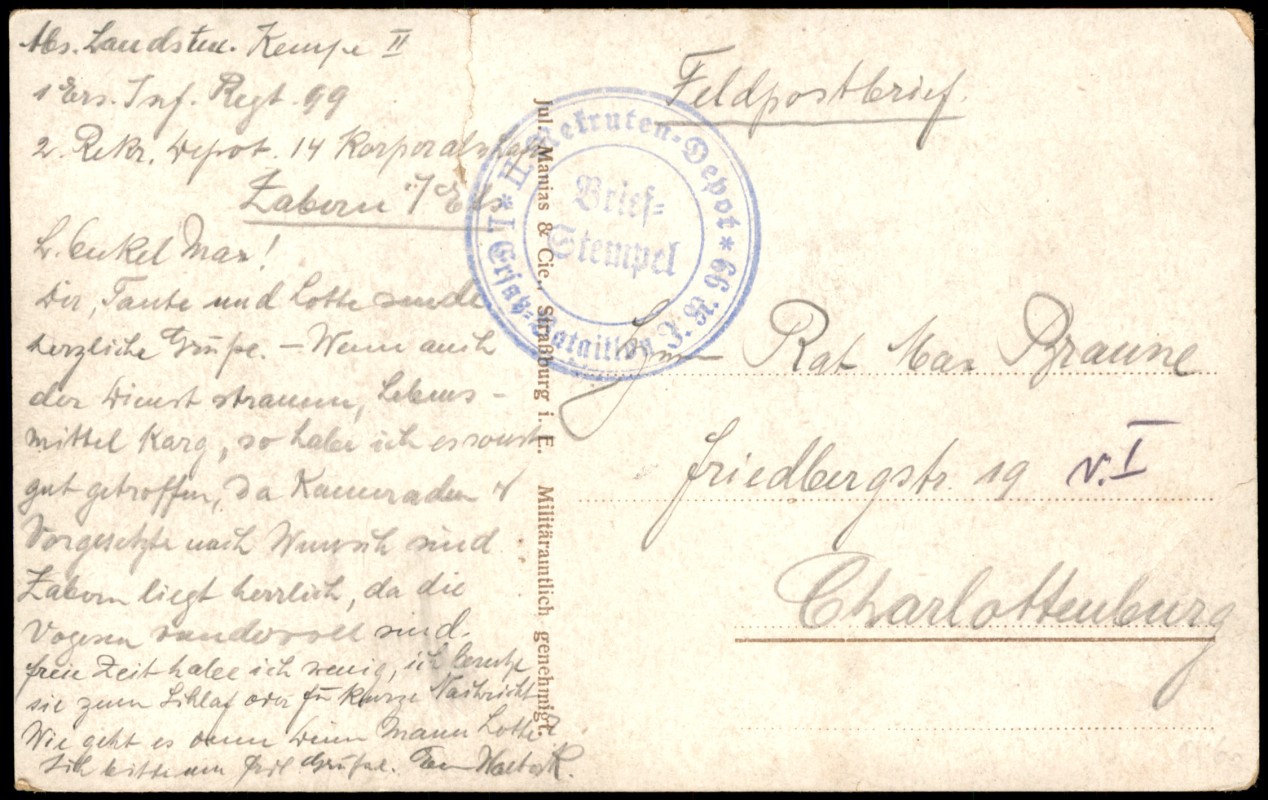 Abs. Landstm. Kempe II
1 Ers. Inf. Regt. 99
2. Rekr. Depot. 14 Korporalschaft
Zabern i/Els
L. Onkel Max!
Dir, Tante und Lotte sende
herzliche Grüße. – Wenn auch
der Dienst stramm, Lebens-
mittel karg, so habe ich es sonst
gut getroffen, da Kameraden &
Vorgesetzte nach Wunsch sind
Zabern liegt herrlich, da die
Vogesen wundervoll sind.
freie Zeit habe ich wenig, ich benutze
sie zum Schlaf oder für kurze Nachricht
Wie geht es denn Mann Lotte?
Ich bitte um frdl. Grüße.
Jul. Manias & Cie., Straßburg i. E. Militäramtlich genehmigt.
II. Rekruten-Depot * I. Ersatz-Bataillon J. R. 99 *
Brief-
Stempel
Feldpostbrief.
Herrn Rat Max Braune
Friedbergstr. 19 v. I
Charlottenburg